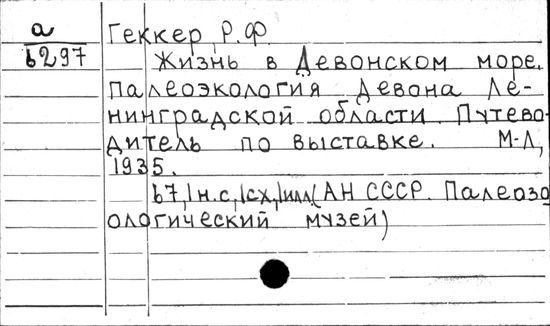 а
b297
Геккер Р.Ф.
Жизнь в Девонском море.
Палеоэкология Девона Ле-
нинградской области. Путево-
дитель по выставке. М-Л,
1935.
67, 1 н.с, 1сх, 1илл (АН СССР. Палеозо
ологический музей)